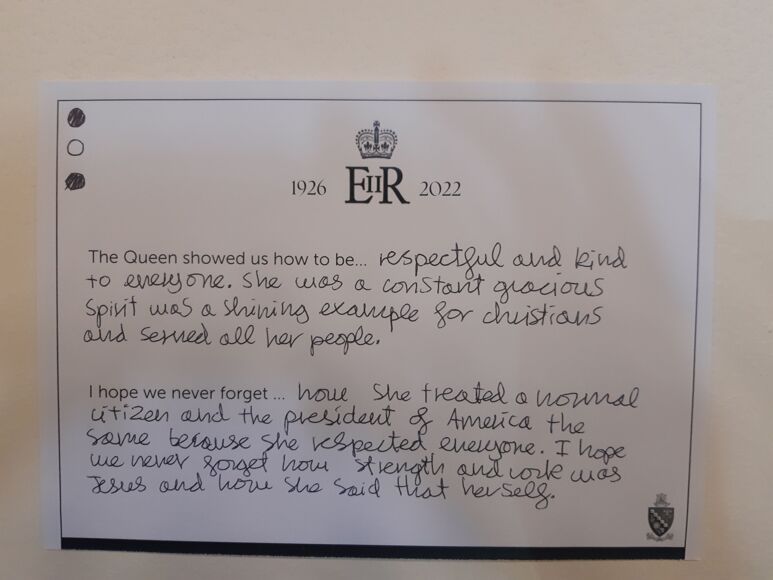 1926 EIIR 2022
The Queen showed us how to be... respectful and kind
to everyone. She was a constant gracious
spirit was a shining example for christians
and served all her people.
I hope we never forget ... how She treated a normal
citizen and the president of America the
same because she respected everyone. I hope
we never forget how strength and was
Jesus and how she said that herself.